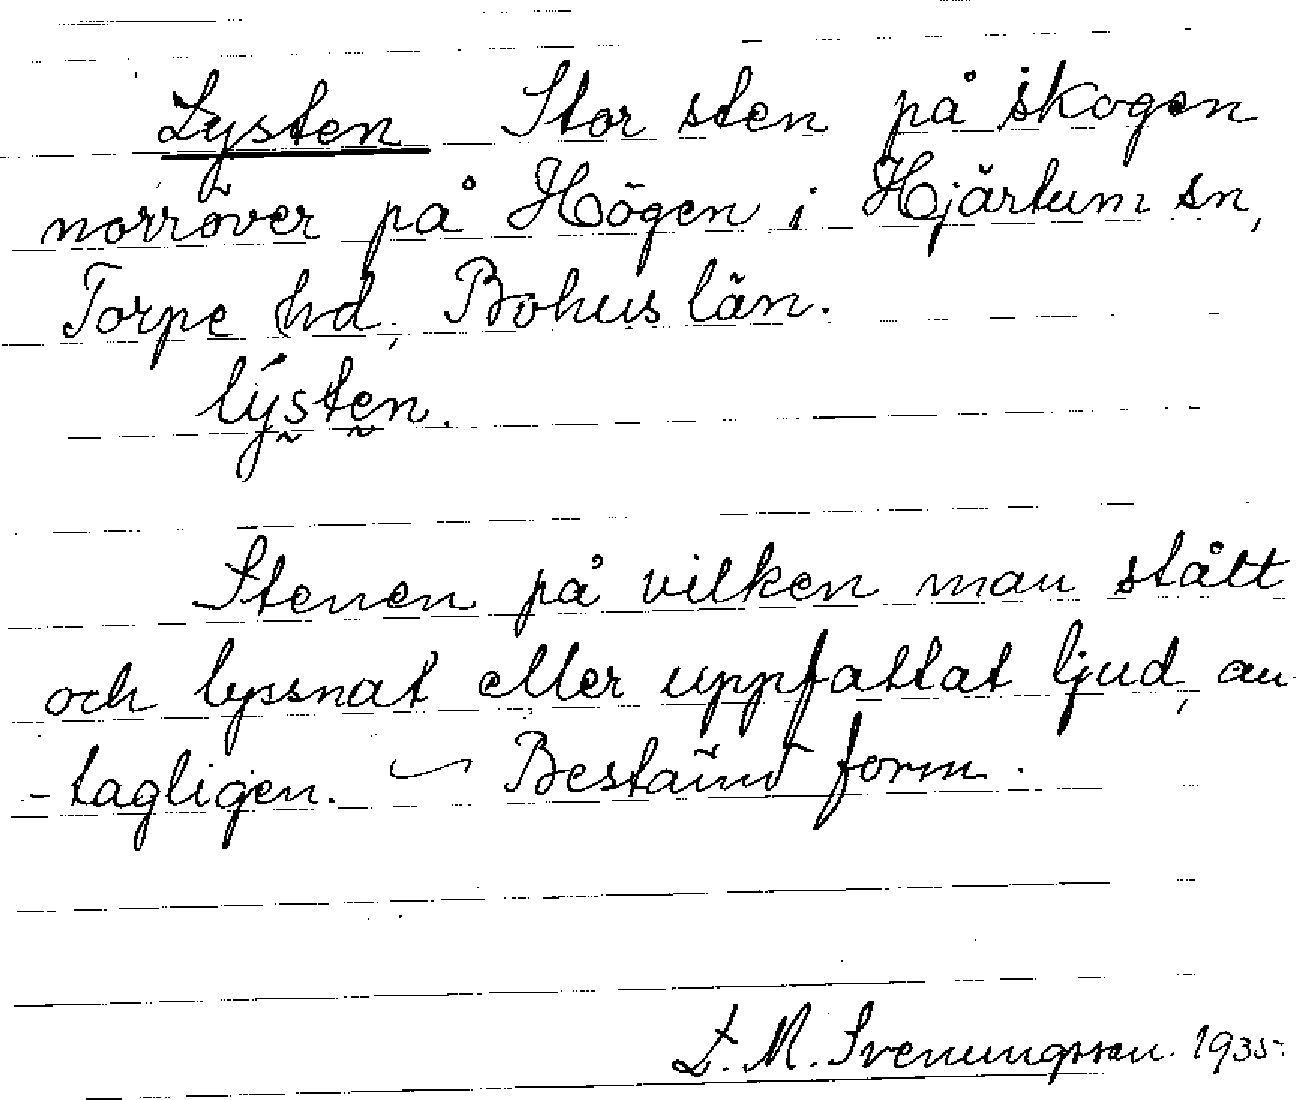 Lysten Stor sten på skogen
norröver på Högen i Hjärtum sn,
Torpe hd, Bohus län.
lýsten.
Stenen på vilken man stått
och lyssnat eller uppfattat ljud, an-
-tagligen. – Bestämd form.
L. M. Svenungsson. 1935.